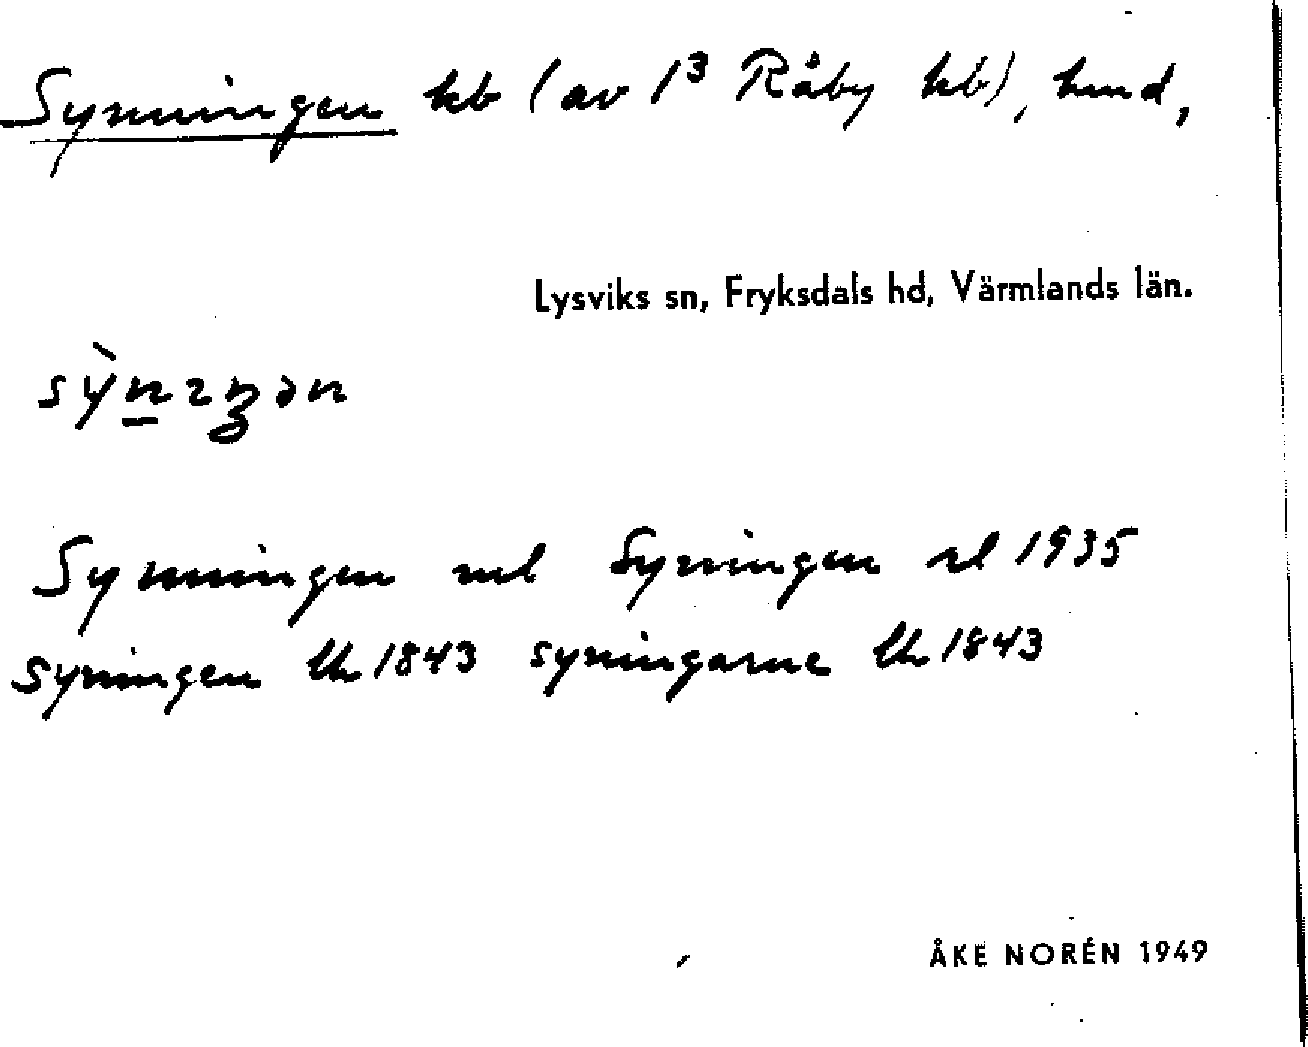 Synningen hb (av 1³ Råby hb), hmd,
Lysviks sn, Fryksdals hd, Värmlands län.
Synningen Syningen rl 1935
Syningen lh 1843 syningarne lh 1843
ÅKE NORÉN 1949